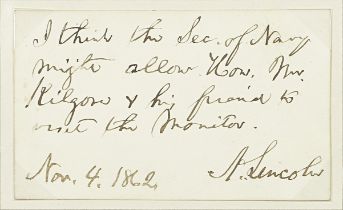 I think the Sec. of Navy
might allow Hon. Mr.
Kilgore & his friend to
visit the Monitor.
Nov. 4. 1862. A. Lincoln